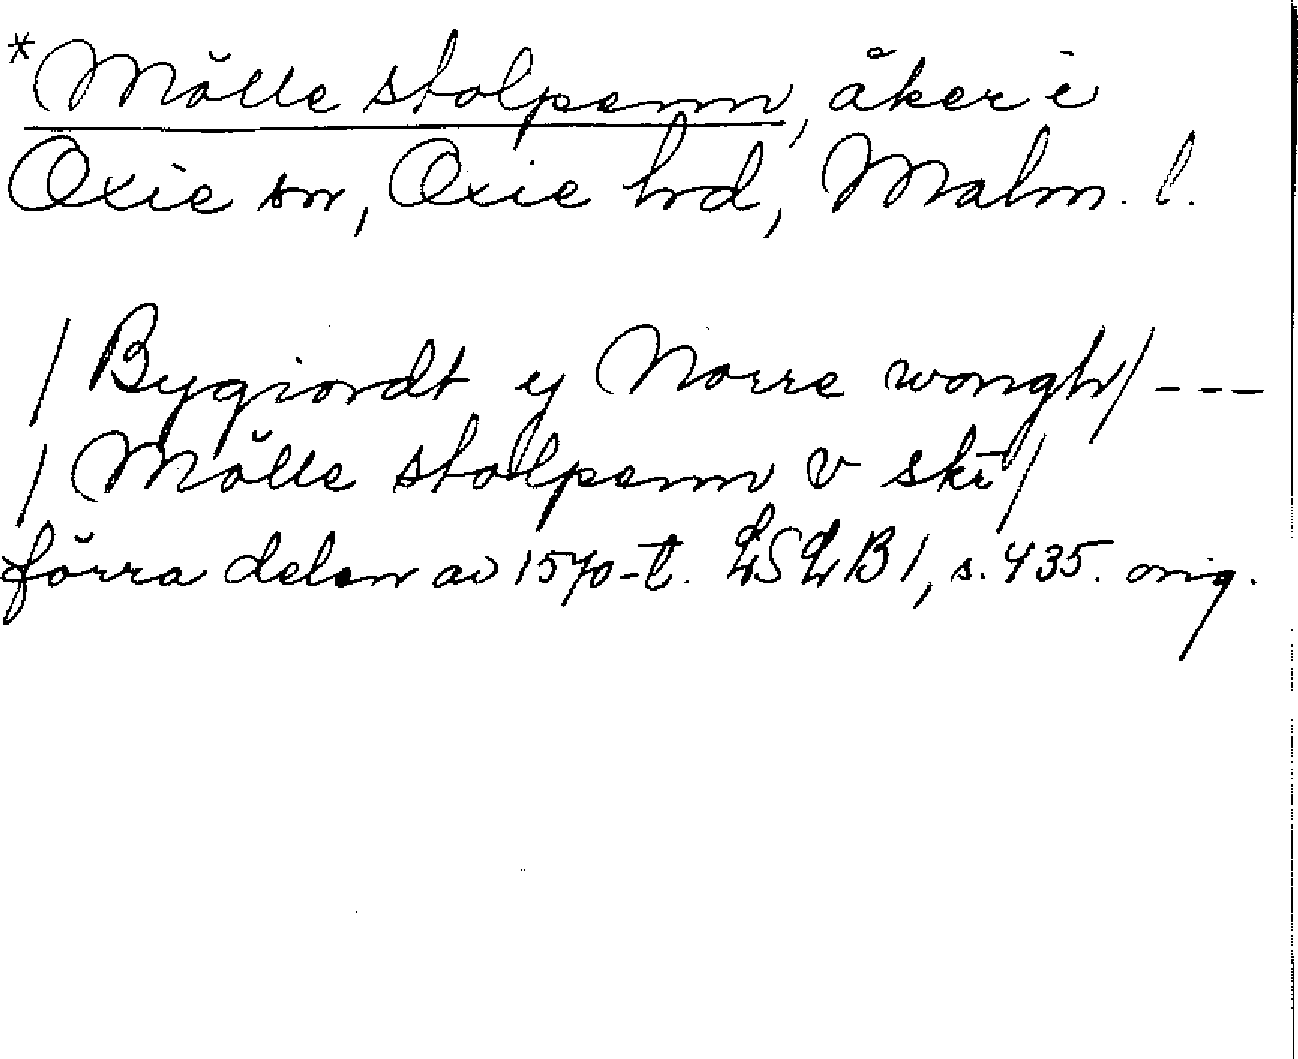 *Mölle stolpenn, åker i
Oxie sn, Oxie hd, Malm. l.
/ Bygiordt y Norre wongh / ---
/ Mölle stolpenn v ski /
förra delen av 1570-t. LSLB 1, s. 435. orig.